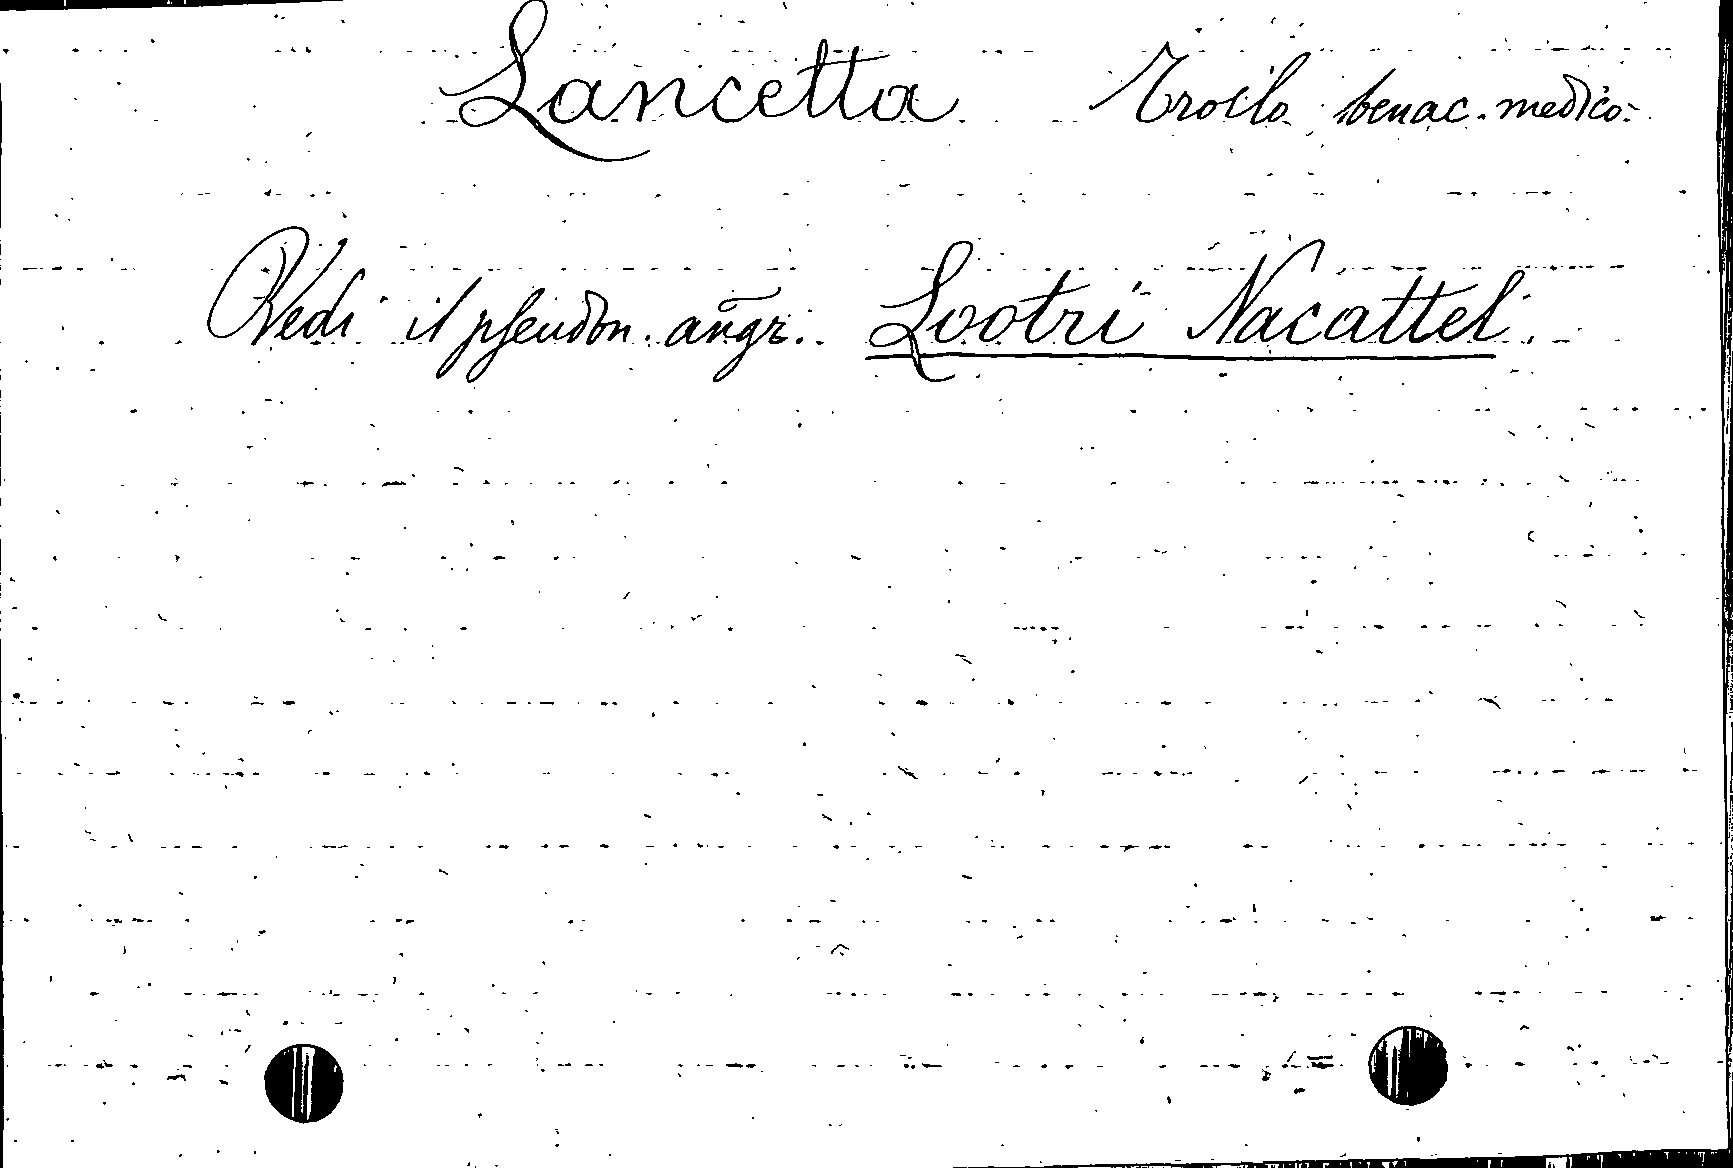 Lancetta Troilo benac. medico.
Vedi il pseudon. angr. Lootri Nacattel.